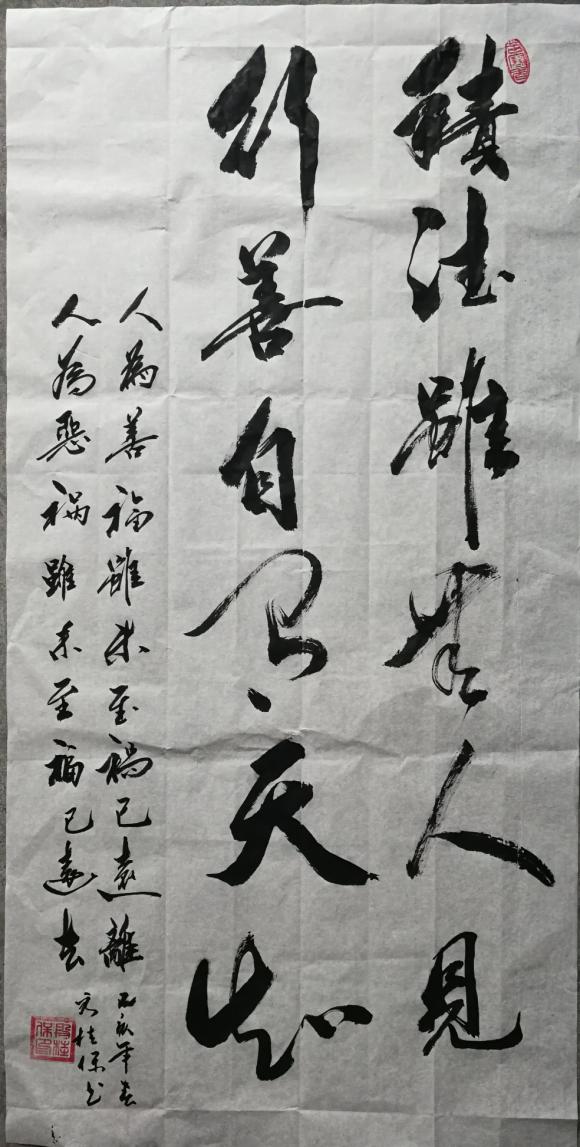 積德雖無人見
行善自有天知
人為善福雖未至禍已遠離
人為惡禍雖未至福已遠去
己亥年春
桂保書